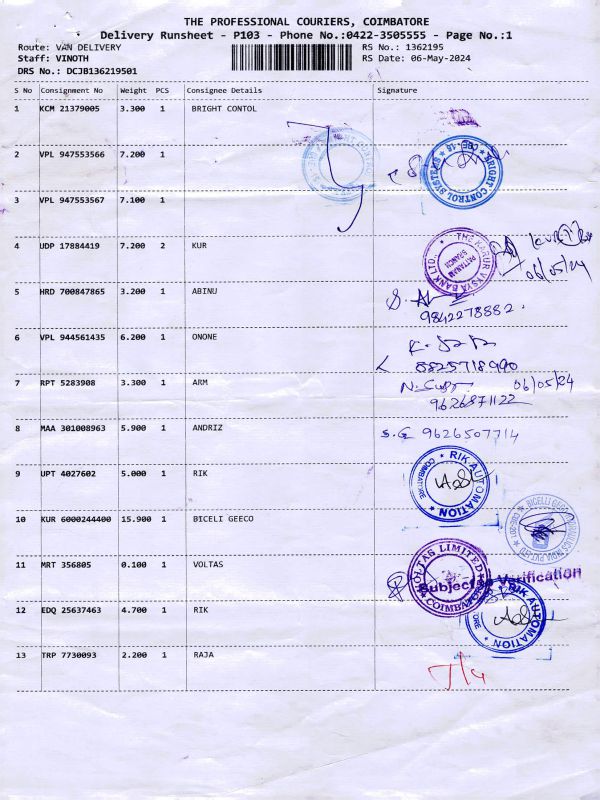 THE PROFESSIONAL COURIERS, COIMBATORE
Delivery Runsheet - P103 - Phone No.:0422-3505555 - Page No.:1
Route: VAN DELIVERY RS No.: 1362195
Staff: VINOTH RS Date: 06-May-2024
DRS No.: DCJB136219501
S No Consignment No Weight PCS Consignee Details Signature
1 KCM 21379005 3.300 1 BRIGHT CONTOL
2 VPL 947553566 7.200 1
BRIGHT CONTROL SYSTEMS ★ CBE-45 ★
3 VPL 947553567 7.100 1
4 UDP 17884419 7.200 2 KUR
THE KARUR VYSYA BANK LTD.
BRANCH
06/05/24
5 HRD 700847865 3.200 1 ABINU
9842278882.
6 VPL 944561435 6.200 1 ONONE
8825718990
7 RPT 5283908 3.300 1 ARM
06/05/24
9626871122
8 MAA 301008963 5.900 1 ANDRIZ
S.G 9626507714
9 UPT 4027602 5.000 1 RIK
★ RIK AUTOMATION ★ COIMBATORE
10 KUR 6000244400 15.900 1 BICELI GEECO
11 MRT 356805 0.100 1 VOLTAS
VOLTAS LIMITED
COIMBATORE
Subject to Verification
12 EDQ 25637463 4.700 1 RIK
RIK AUTOMATION ★
13 TRP 7730093 2.200 1 RAJA